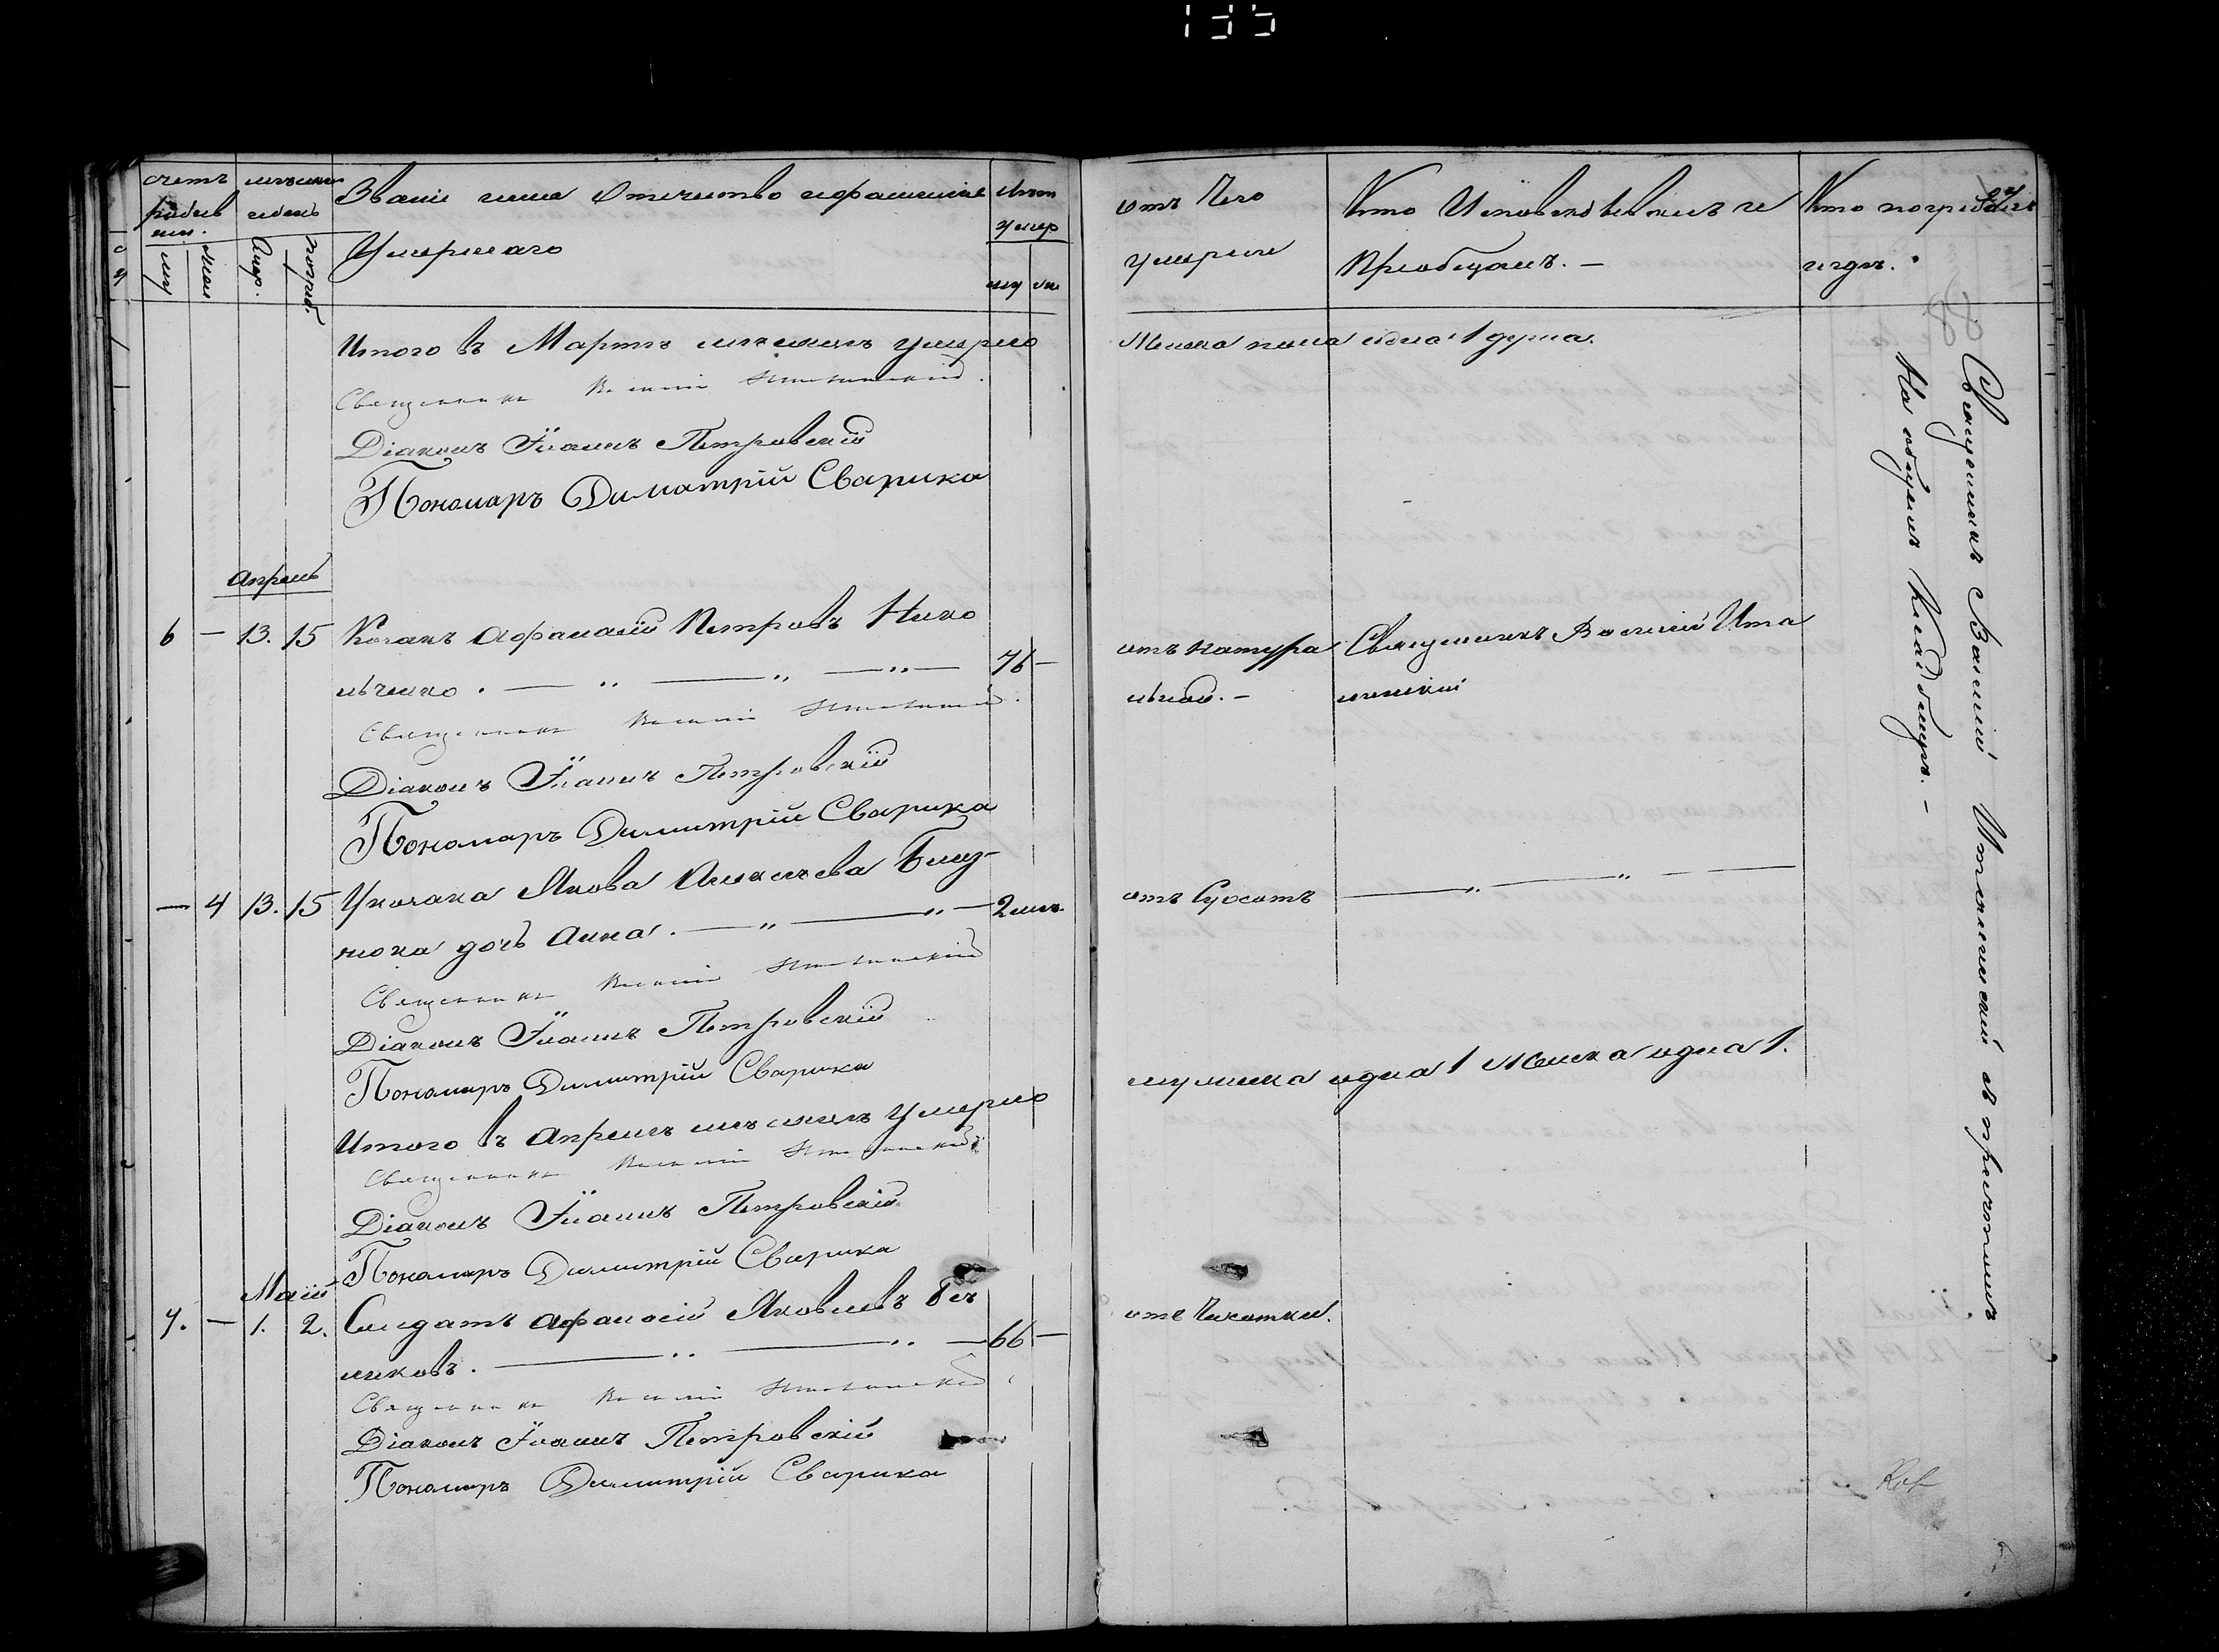 135
счетъ
родив
ши.
муж
жен
месяць
и день
Смер.
погреб.
Званіе имя Отчество и фамилія
Умершаго
Лѣт
умер
му
же
Итого въ Мартѣ месяцѣ умерло
Священникъ Василій
Діаконъ Іоаннъ Петровскій
Пономаръ Диматрій Сварика
Апрель
6 — 13. 15 Козакъ Афанасій Петровъ Нико
льченко. — 76 —
Священникъ Василій
Діаконъ Іоаннъ Петровскій
Пономаръ Димитрій Сварика
— 4 13. 15 У козака Якова Алексѣева Близ-
нюка дочь Анна. — 2 мѣ.
Священникъ Василій
Діаконъ Іоаннъ Петровскій
Пономаръ Димитрій Сварика
Итого въ Апрелѣ месяцѣ умерло
Священникъ Василій
Діаконъ Іоаннъ Петровскій
Пономаръ Димитрій Сварика
Маій
7. — 1. 2. Солдатъ Афанасій Яковлевъ
никовъ. — 66 —
Священникъ Василій
Діаконъ Іоаннъ Петровскій
Пономаръ Димитрій Сварика
отъ Чего
умерли
Кто Исповѣдовалъ и
Пріобщалъ. —
Кто погребалъ
и гдѣ.
Женска пола одна 1 душа.
отъ натура
льной. —
Священникъ Василій
отъ Сухотъ
мужеска одна 1 женска одна 1.
отъ Чахотки.
Священникъ Василій съ причтомъ
На общемъ Кладбищѣ. —